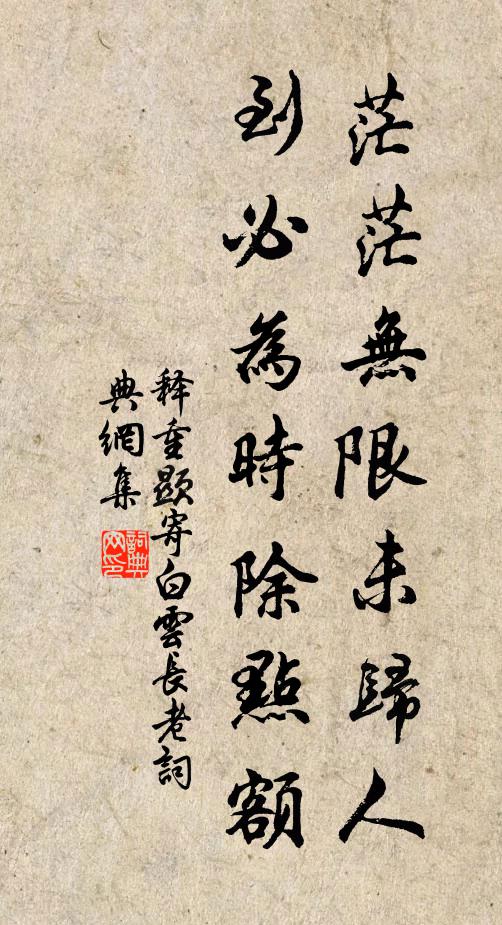 茫茫無限未歸人
到必為時除點額
釋重顯寄白雲長老詞
典網集
詞典网印